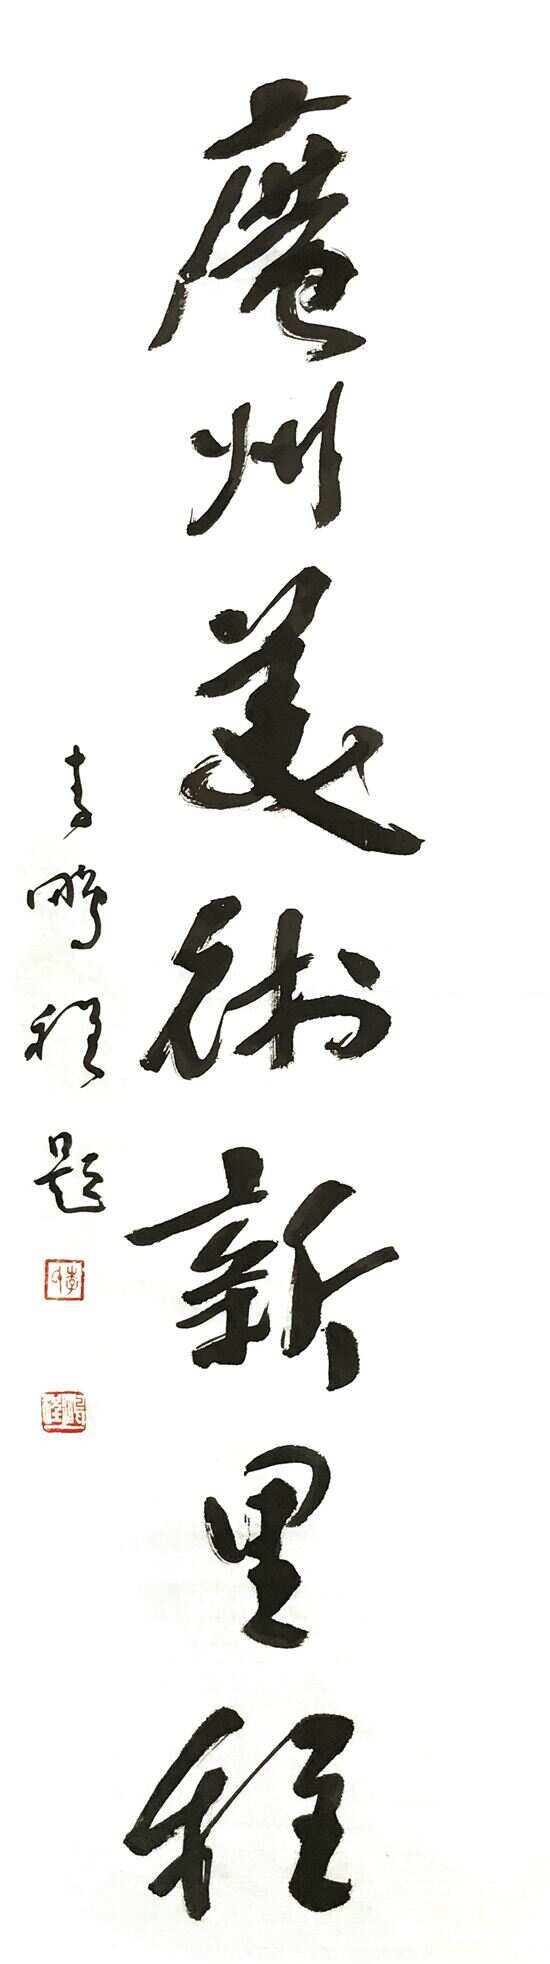 廣州美術新里程
李鵬程題